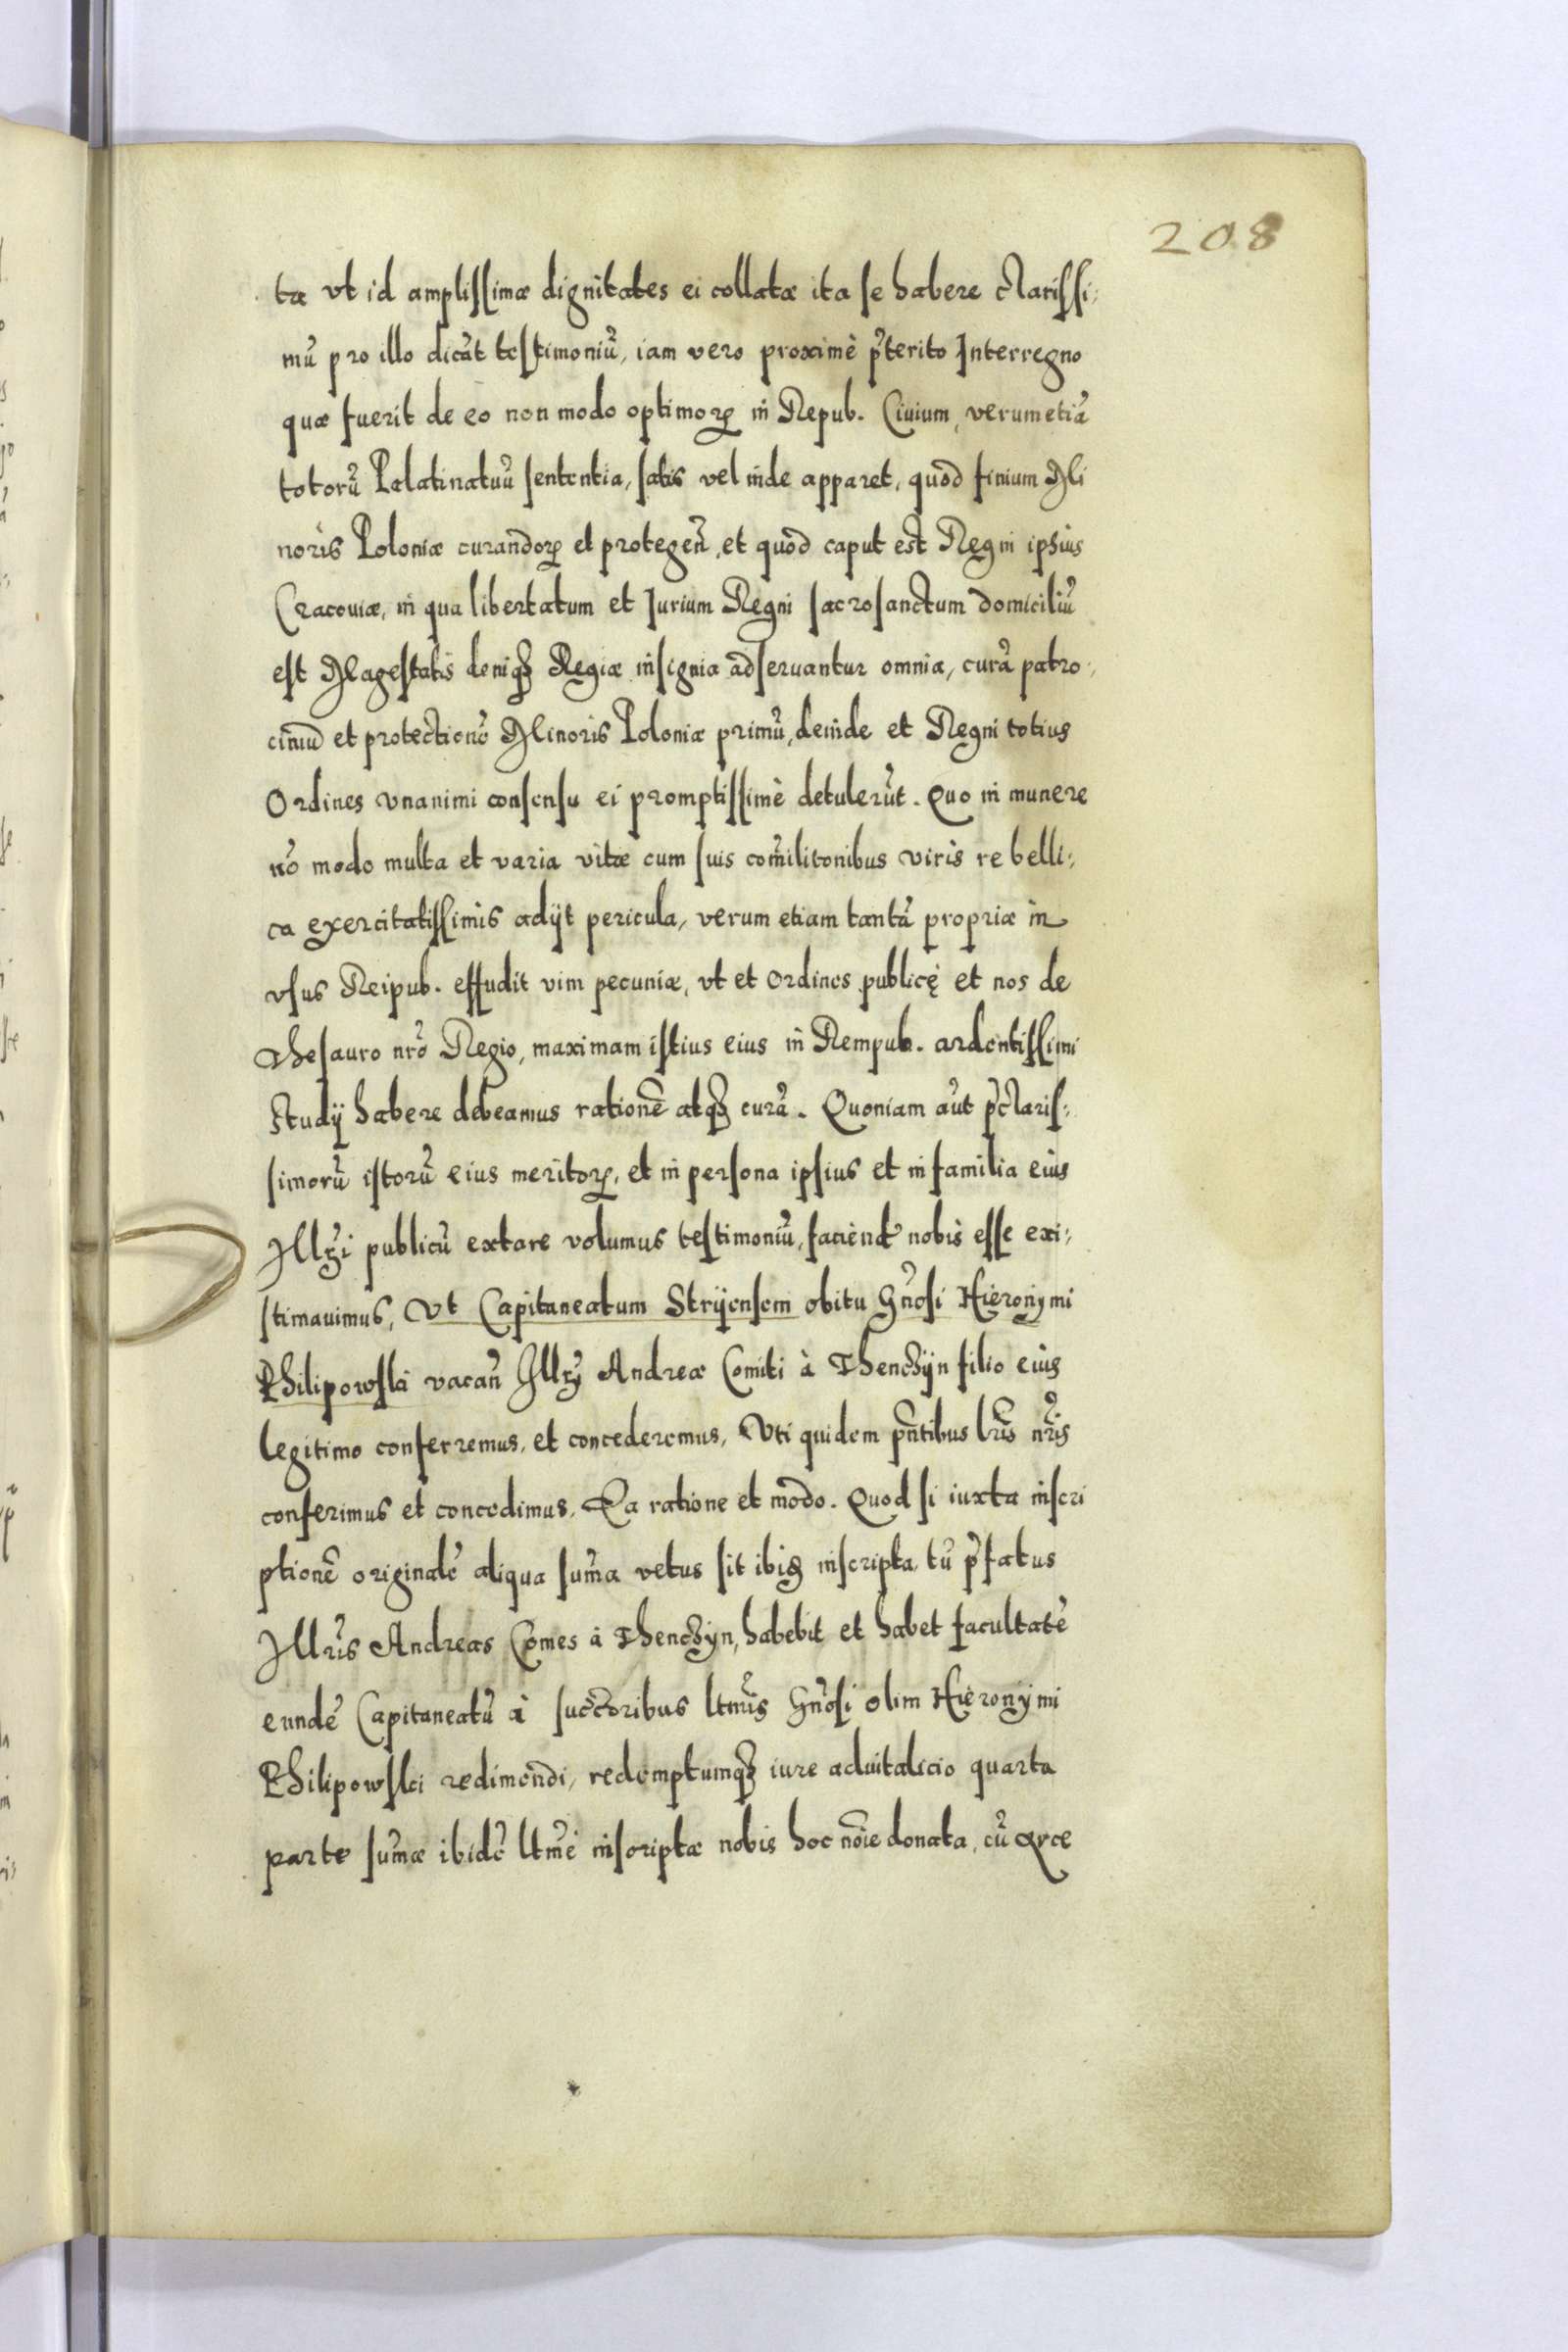 208
ta vt id amplissimæ dignitates ei collatæ ita se habere clarissi:
mũ pro illo dicãt testimoniũ, iam vero proximè p̃terito Interregno
quæ fuerit de eo non modo optimoꝝ in Repub. Ciuium, verumetiã
totorũ Palatinatuũ sententia, satis vel inde apparet, quod finium Mi
noris Poloniæ curandoꝝ et protegeñ, et quod caput est Regni ipsius
Cracouiæ, in qua libertatum et Iurium Regni sacrosanctum domiciliũ
est Magestatis deniqꝫ Regiæ insignia adseruantur omnia, curã patro:
ciniũ et protectionẽ Minoris Poloniæ primũ, deinde et Regni totius
Ordines vnanimi consensu ei promptissimè detulerũt. Quo in munere
nõ modo multa et varia vitæ cum suis com̃ilitonibus viris re belli:
ca exercitatissimis adijt pericula, verum etiam tantã propriæ in
vsus Reipub. effudit vim pecuniæ, vt et Ordines publicę et nos de
Thesauro nr̃o Regio, maximam istius eius in Rempub. ardentissimi
Studij habere debeamus rationẽ atqꝫ curã. Quoniam aũt p̃claris:
simorũ istorũ eius meritoꝝ, et in persona ipsius et in familia eius
Illr̃i publicũ extare volumus testimoniũ, faciend̃ nobis esse exi:
stimauimus, Vt Capitaneatum Stryensem obitu Gñosi Hieronymi
Philipowski vacañ Illr̃ Andreæ Comiti à Thenczyn filio eius
legitimo conferremus, et concederemus, Vti quidem p̃ntibus lr̃is nr̃is
conferimus et concedimus, Ea ratione et modo. Quod si iuxta inscri
ptionẽ originalẽ aliqua sum̃a vetus sit ibiꝫ inscripta, tũ p̃fatus
Illr̃is Andreas Comes à Thenczyn, habebit et habet facultatẽ
eundẽ Capitaneatũ à succ̃oribus ltm̃is Gñosi olim Hieronymi
Philipowski redimendi, redemptumqꝫ iure aduitalicio quarta
parte sum̃æ ibidẽ ltm̃e inscriptæ nobis hoc nõie donata, cũ arce